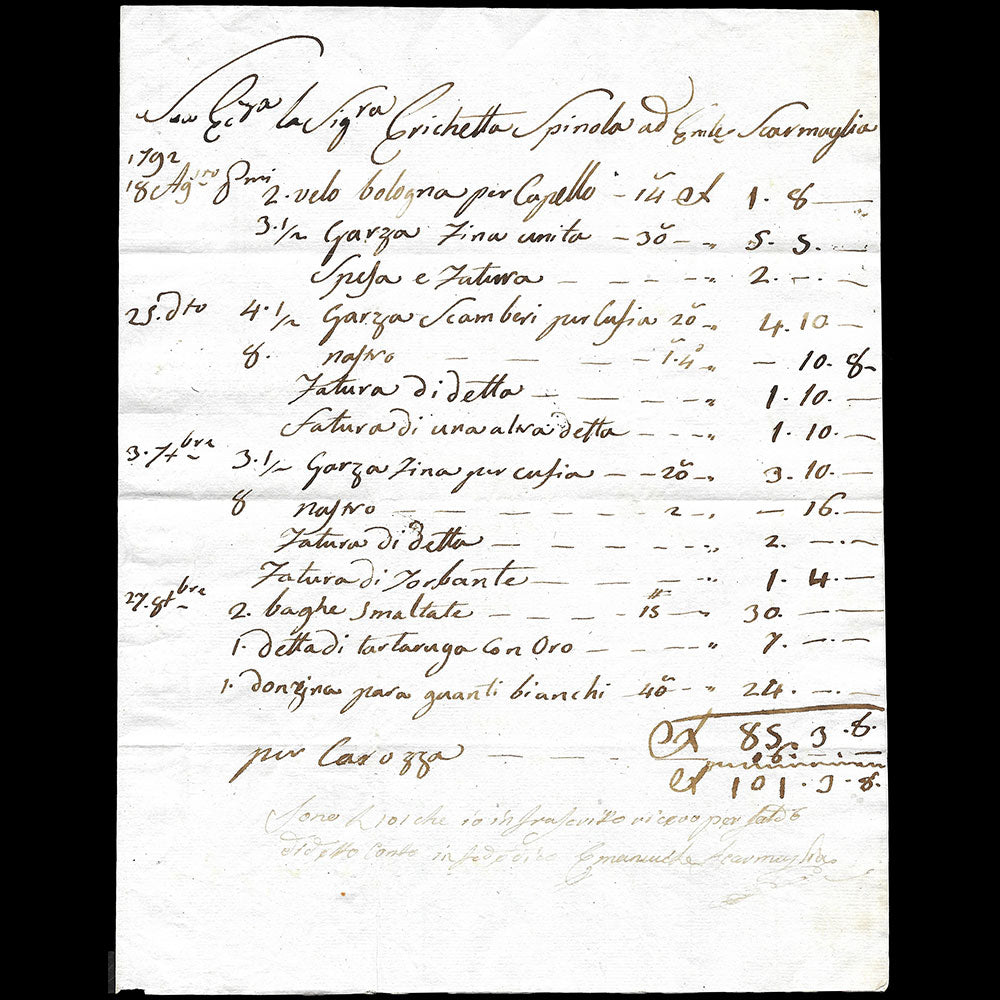 Sua Ecza la Sigra Crichetta Spinola ad Emle Scarmaglia
1792
18 Agsto Pmi 2. velo bologna per Capello - 14 £ 1. 8 —
3.1/2 Garza Fina unita - 30 - „ 5. 5. —
Spesa e Fatura — — — - „ 2. —. —
25. dto 4.1/2 Garza Scamberi per Cusia 20 „ 4. 10 —
8. nastro — — — 1.4 „ — 10. 8 -
Fatura di detta — — — - „ 1. 10. —
fatura di una altra detta — - - „ 1. 10. —
3. 7bre 3.1/2 Garza Fina per cusia — 20 - „ 3. 10. —
8 nastro — — — — — 2 - „ — 16. —
Fatura di detta — — — - „ 2. —. —
Fatura di Torbante — — - - „ 1. 4. —
27. 8bre 2. baghe Smaltate — — — 15 — „ 30. — —
1. detta di tartaruga con Oro — — — „ 7. —. —
1. donzina para guanti bianchi — 40 - „ 24. —. —
£ 85. 3. 8.
per Carozza — — - 16. — —
£ 101. 3. 8.
Sono £ 101 che io infrascritto ricevo per saldo
di detto Conto in fede dico Emanuele Scarmaglia